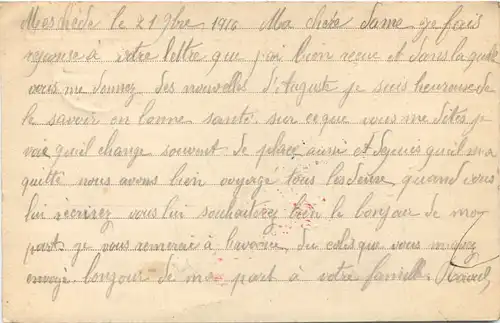 Meschède le 21 9bre 1916 Ma chère dame je fais
reponse à votre lettre que j'ai bien reçue et dans laquelle
vous me donnez des nouvelles d'Auguste je suis heureux de
le savoir en bonne santé sur ce que vous me dites je
vois qu'il change souvent de place, ainsi et depuis qu'il m'a
quitté nous avons bien voyagé tous les deux, quand vous
lui écrirez vous lui souhaiterez bien le bonjour de ma
part. je vous remercie à l'avance du colis que vous m'avez
envoyé bonjour de ma part à votre famille.